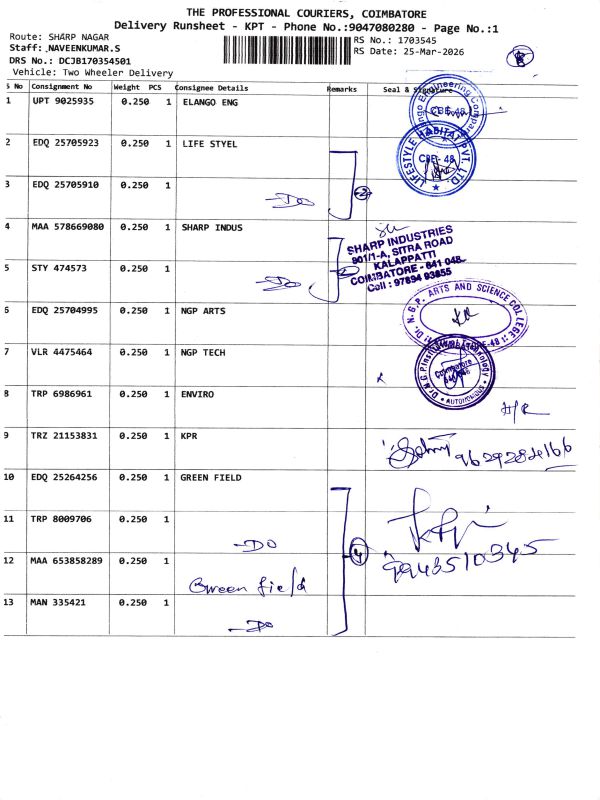 THE PROFESSIONAL COURIERS, COIMBATORE
Delivery Runsheet - KPT - Phone No.:9047080280 - Page No.:1
Route: SHARP NAGAR
RS No.: 1703545
Staff: NAVEENKUMAR.S
RS Date: 25-Mar-2026
DRS No.: DCJB170354501
Vehicle: Two Wheeler Delivery
S No Consignment No Weight PCS Consignee Details Remarks Seal & Signature
1 UPT 9025935 0.250 1 ELANGO ENG
CBE-48
2 EDQ 25705923 0.250 1 LIFE STYEL
LIFESTYLE HABITAT PVT. LTD.
CBE-48
3 EDQ 25705910 0.250 1
-Do
2
4 MAA 578669080 0.250 1 SHARP INDUS
SHARP INDUSTRIES
901/1-A, SITRA ROAD
KALAPPATTI
COIMBATORE - 641 048.
Cell : 97894 93855
5 STY 474573 0.250 1
-Do
6 EDQ 25704995 0.250 1 NGP ARTS
Dr. N.G.P. ARTS AND SCIENCE COLLEGE
7 VLR 4475464 0.250 1 NGP TECH
Coimbatore
AUTONOMOUS
8 TRP 6986961 0.250 1 ENVIRO
H/R
9 TRZ 21153831 0.250 1 KPR
9629284166
10 EDQ 25264256 0.250 1 GREEN FIELD
11 TRP 8009706 0.250 1
-Do
4
9943510345
12 MAA 653858289 0.250 1
Green field
13 MAN 335421 0.250 1
-Do